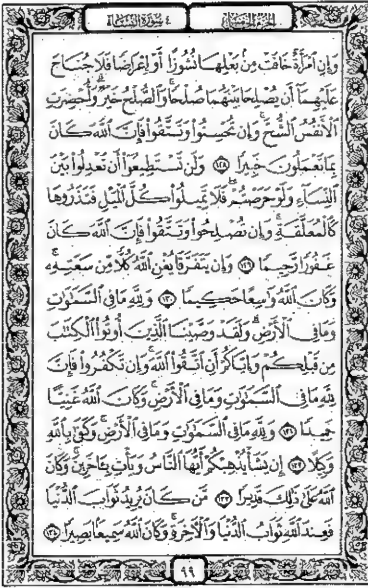 ٤ سورة النساء
الجزء الخامس
وَإِنِ ٱمْرَأَةٌ خَافَتْ مِنۢ بَعْلِهَا نُشُوزًا أَوْ إِعْرَاضًا فَلَا جُنَاحَ
عَلَيْهِمَآ أَن يُصْلِحَا بَيْنَهُمَا صُلْحًا وَٱلصُّلْحُ خَيْرٌ وَأُحْضِرَتِ
ٱلْأَنفُسُ ٱلشُّحَّ وَإِن تُحْسِنُوا۟ وَتَتَّقُوا۟ فَإِنَّ ٱللَّهَ كَانَ
بِمَا تَعْمَلُونَ خَبِيرًا ١٢٨ وَلَن تَسْتَطِيعُوٓا۟ أَن تَعْدِلُوا۟ بَيْنَ
ٱلنِّسَآءِ وَلَوْ حَرَصْتُمْ فَلَا تَمِيلُوا۟ كُلَّ ٱلْمَيْلِ فَتَذَرُوهَا
كَٱلْمُعَلَّقَةِ وَإِن تُصْلِحُوا۟ وَتَتَّقُوا۟ فَإِنَّ ٱللَّهَ كَانَ
غَفُورًا رَّحِيمًا ١٢٩ وَإِن يَتَفَرَّقَا يُغْنِ ٱللَّهُ كُلًّا مِّن سَعَتِهِۦ
وَكَانَ ٱللَّهُ وَٰسِعًا حَكِيمًا ١٣٠ وَلِلَّهِ مَا فِى ٱلسَّمَٰوَٰتِ
وَمَا فِى ٱلْأَرْضِ وَلَقَدْ وَصَّيْنَا ٱلَّذِينَ أُوتُوا۟ ٱلْكِتَٰبَ
مِن قَبْلِكُمْ وَإِيَّاكُمْ أَنِ ٱتَّقُوا۟ ٱللَّهَ وَإِن تَكْفُرُوا۟ فَإِنَّ
لِلَّهِ مَا فِى ٱلسَّمَٰوَٰتِ وَمَا فِى ٱلْأَرْضِ وَكَانَ ٱللَّهُ غَنِيًّا
حَمِيدًا ١٣١ وَلِلَّهِ مَا فِى ٱلسَّمَٰوَٰتِ وَمَا فِى ٱلْأَرْضِ وَكَفَىٰ بِٱللَّهِ
وَكِيلًا ١٣٢ إِن يَشَأْ يُذْهِبْكُمْ أَيُّهَا ٱلنَّاسُ وَيَأْتِ بِـَٔاخَرِينَ وَكَانَ
ٱللَّهُ عَلَىٰ ذَٰلِكَ قَدِيرًا ١٣٣ مَّن كَانَ يُرِيدُ ثَوَابَ ٱلدُّنْيَا
فَعِندَ ٱللَّهِ ثَوَابُ ٱلدُّنْيَا وَٱلْءَاخِرَةِ وَكَانَ ٱللَّهُ سَمِيعًۢا بَصِيرًا ١٣٤
٩٩